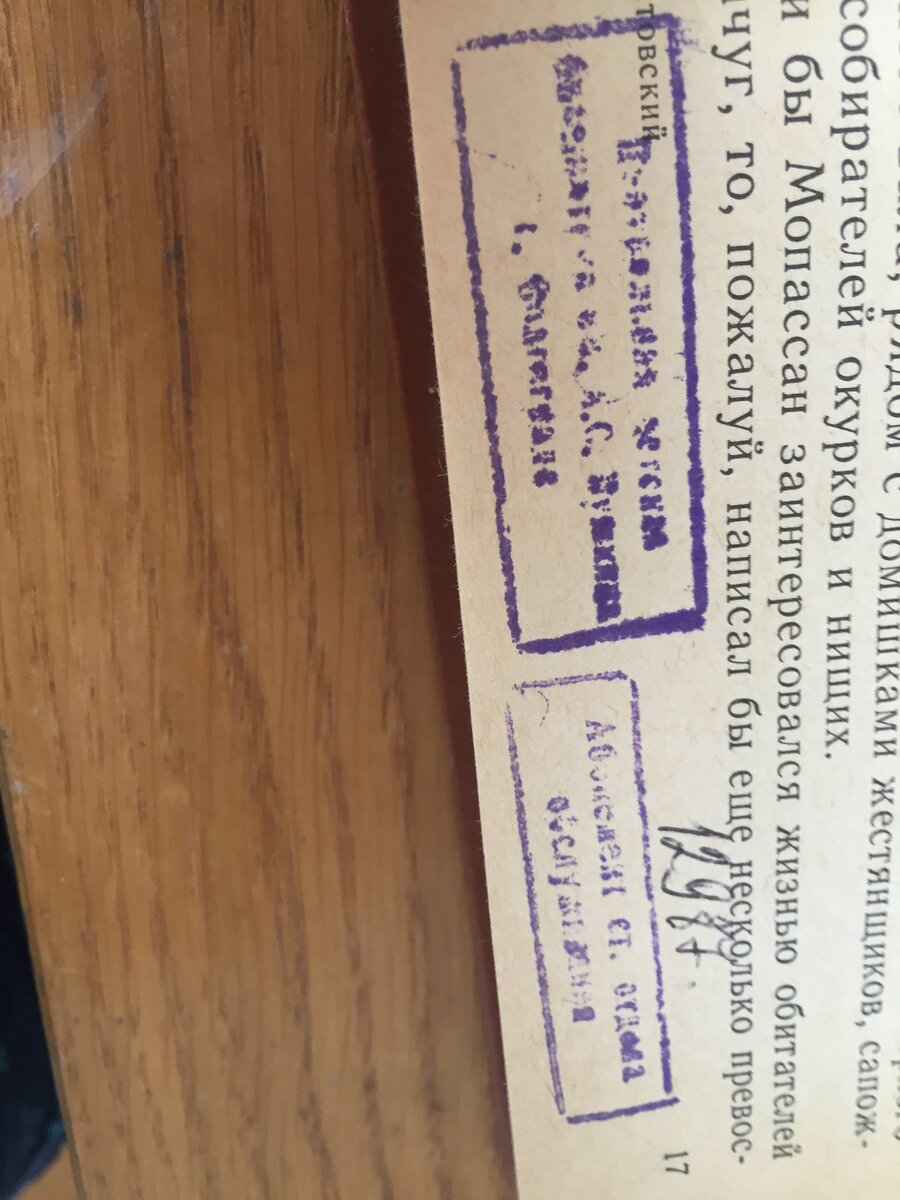 рядом с домишками жестянщиков, сапож-
собирателей окурков и нищих.
и бы Мопассан заинтересовался жизнью обитателей
чуг, то, пожалуй, написал бы еще несколько превос-
товский
17
Центральная детская
библиотека им. А.С. Пушкина
г.
Абонемент ст. отдела
обслуживания